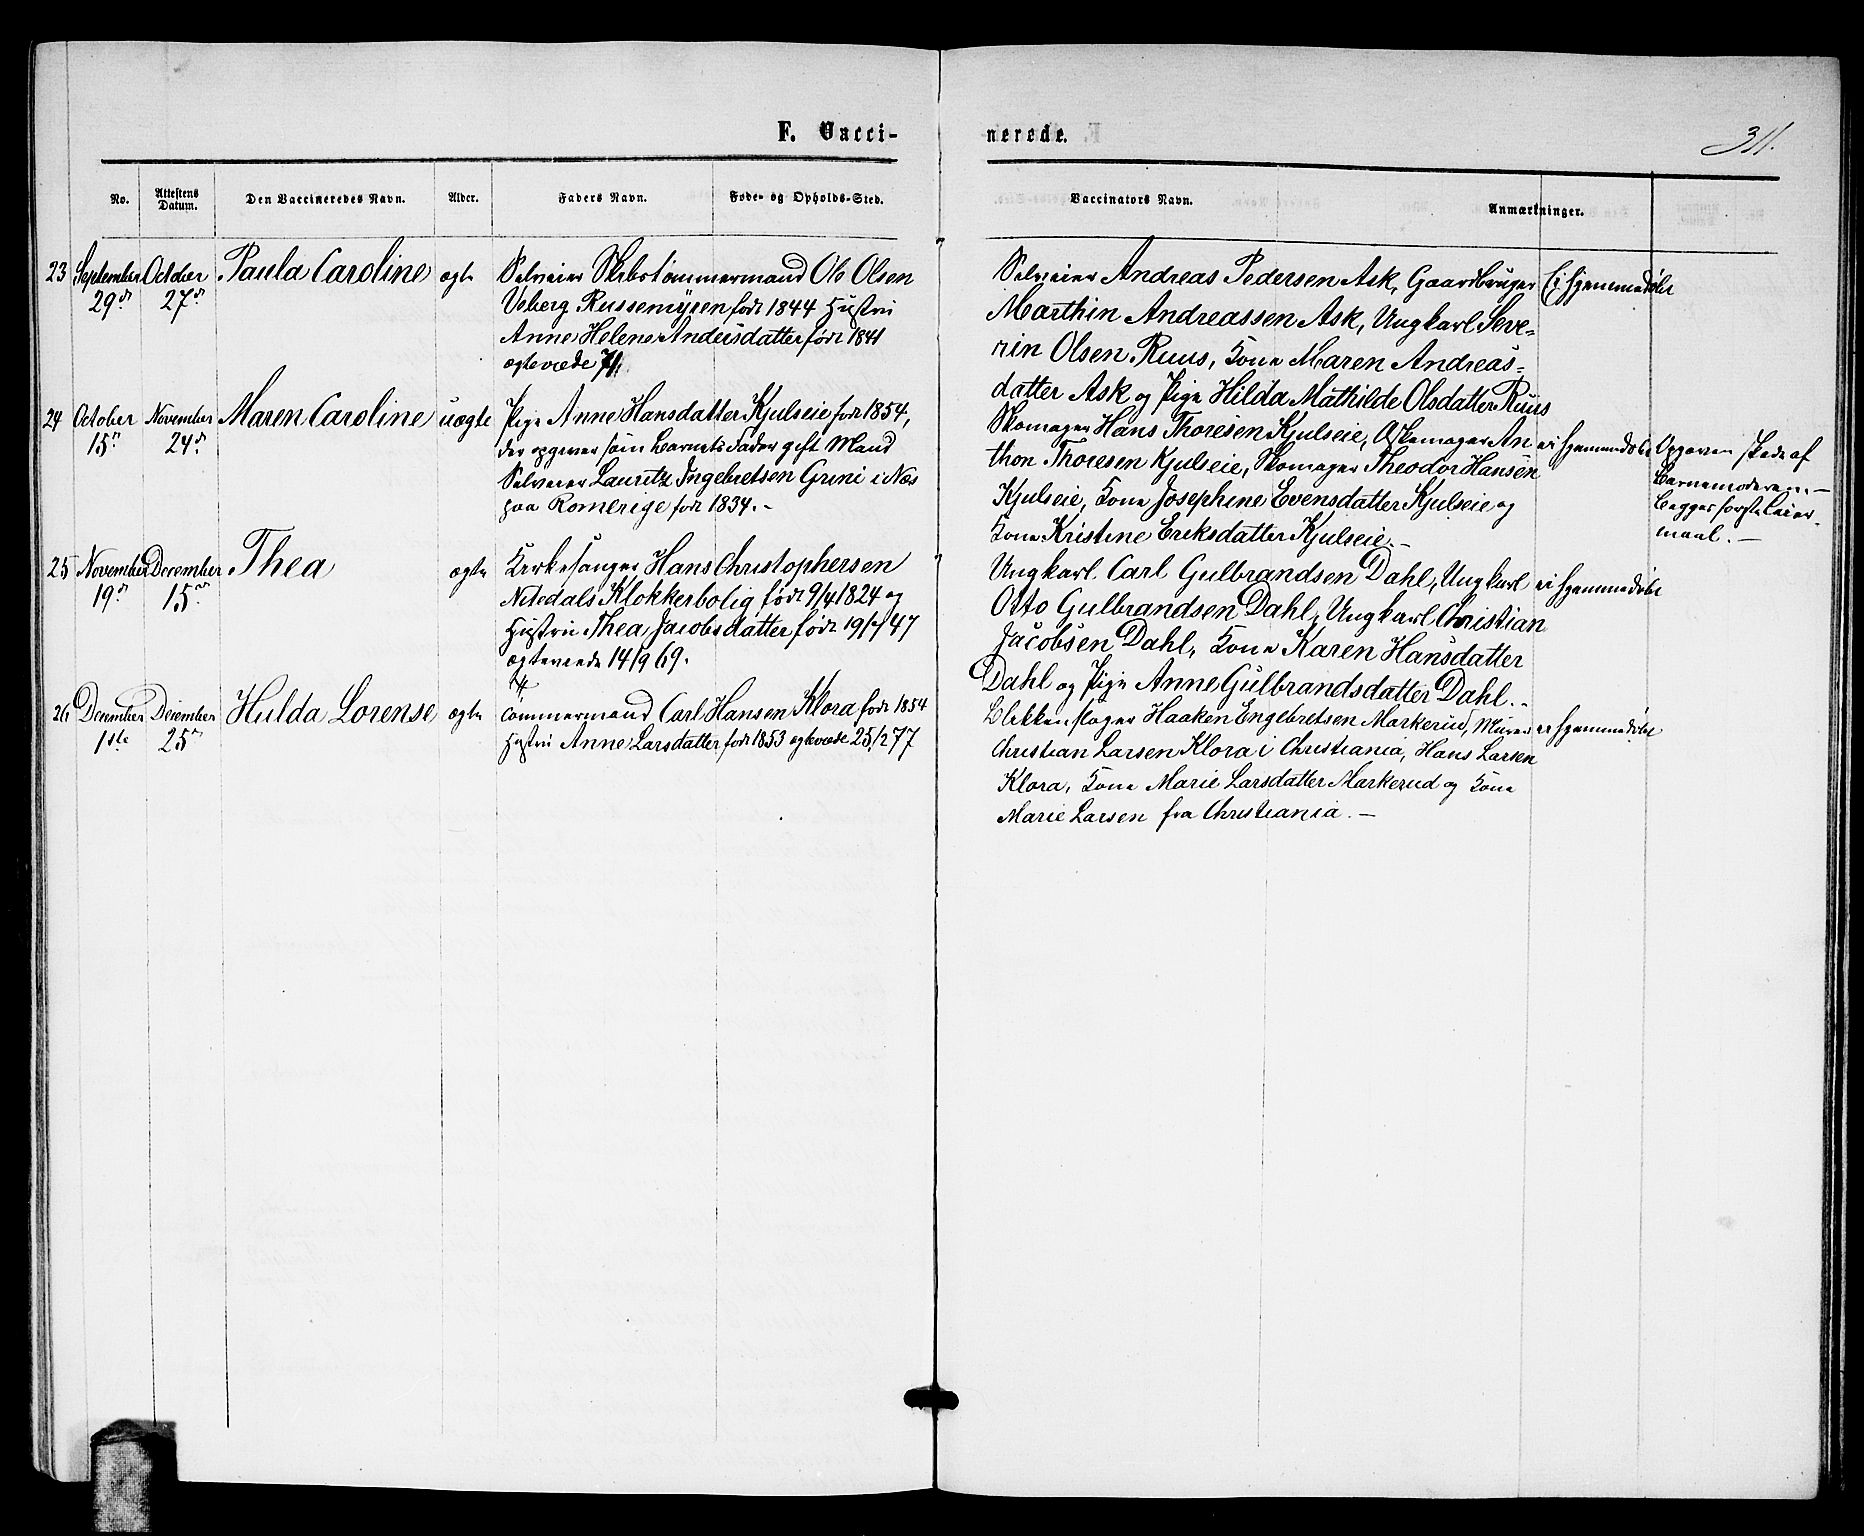 F. Vacci-
nerede.
311.
No.
Attestens Datum.
Den Vaccineredes Navn.
Alder.
Faders Navn.
Føde- og Opholds-Sted.
Vaccinators Navn.
Anmærkninger.
23 September October Paula Caroline ægte Selveier Skibstømmermand Ole Olsen
29de 27de Veberg Russemyren født 1844 Hustru
Anne Helene Andersdatter født 1841
ægteviede 71.
Selveier Andreas Pedersen Ask, Gaardbruger
Marthin Andreassen Ask, Ungkarl Seve-
rin Olsen Ruus, Kone Maren Andreas-
datter Ask og Pige Hilda Mathilde Olsdatter Ruus
Ei hjemmedøbt
24 October November Maren Caroline uægte Pige Anne Hansdatter Kjulseie født 1854,
15de 24de der opgiver som Barnets Fader gift Mand
Selveier Lauritz Ingebretsen Grini i Næs
paa Romerige født 1834.-
Skomager Hans Thoresen Kjulseie, Skomager An
thon Thoresen Kjulseie, Skomager Theodor Hansen
Kjulseie, Kone Josephine Evensdatter Kjulseie og
Kone Kristine Eriksdatter Kjulseie.-
ei hjemmedøbt
Opgaven skede af
Barnemoderen.-
Begges første Leier-
maal.-
25 November December Thea ægte Kirkesanger Hans Christophersen
19de 15de Nitedals Klokkerbolig født 9/4 1824 og
Hustru Thea Jacobsdatter født 19/7 47
ægteviede 14/9 69.
Ungkarl Carl Gulbrandsen Dahl, Ungkarl
Otto Gulbrandsen Dahl, Ungkarl Christian
Jacobsen Dahl, Kone Karen Hansdatter
Dahl og Pige Anne Gulbrandsdatter Dahl.-
ei hjemmedøbt
26 December December Hulda Lorense ægte Tømmermand Carl Hansen Klora født 1854
1ste 25de Hustru Anne Larsdatter født 1853 ægteviede 25/2 77
Blikkenslager Haaken Engebretsen Markerud, Murer
Christian Larsen Klora i Christiania, Hans Larsen
Klora, Kone Marie Larsdatter Markerud og Kone
Marie Larsen fra Christiania.-
ei hjemmedøbt